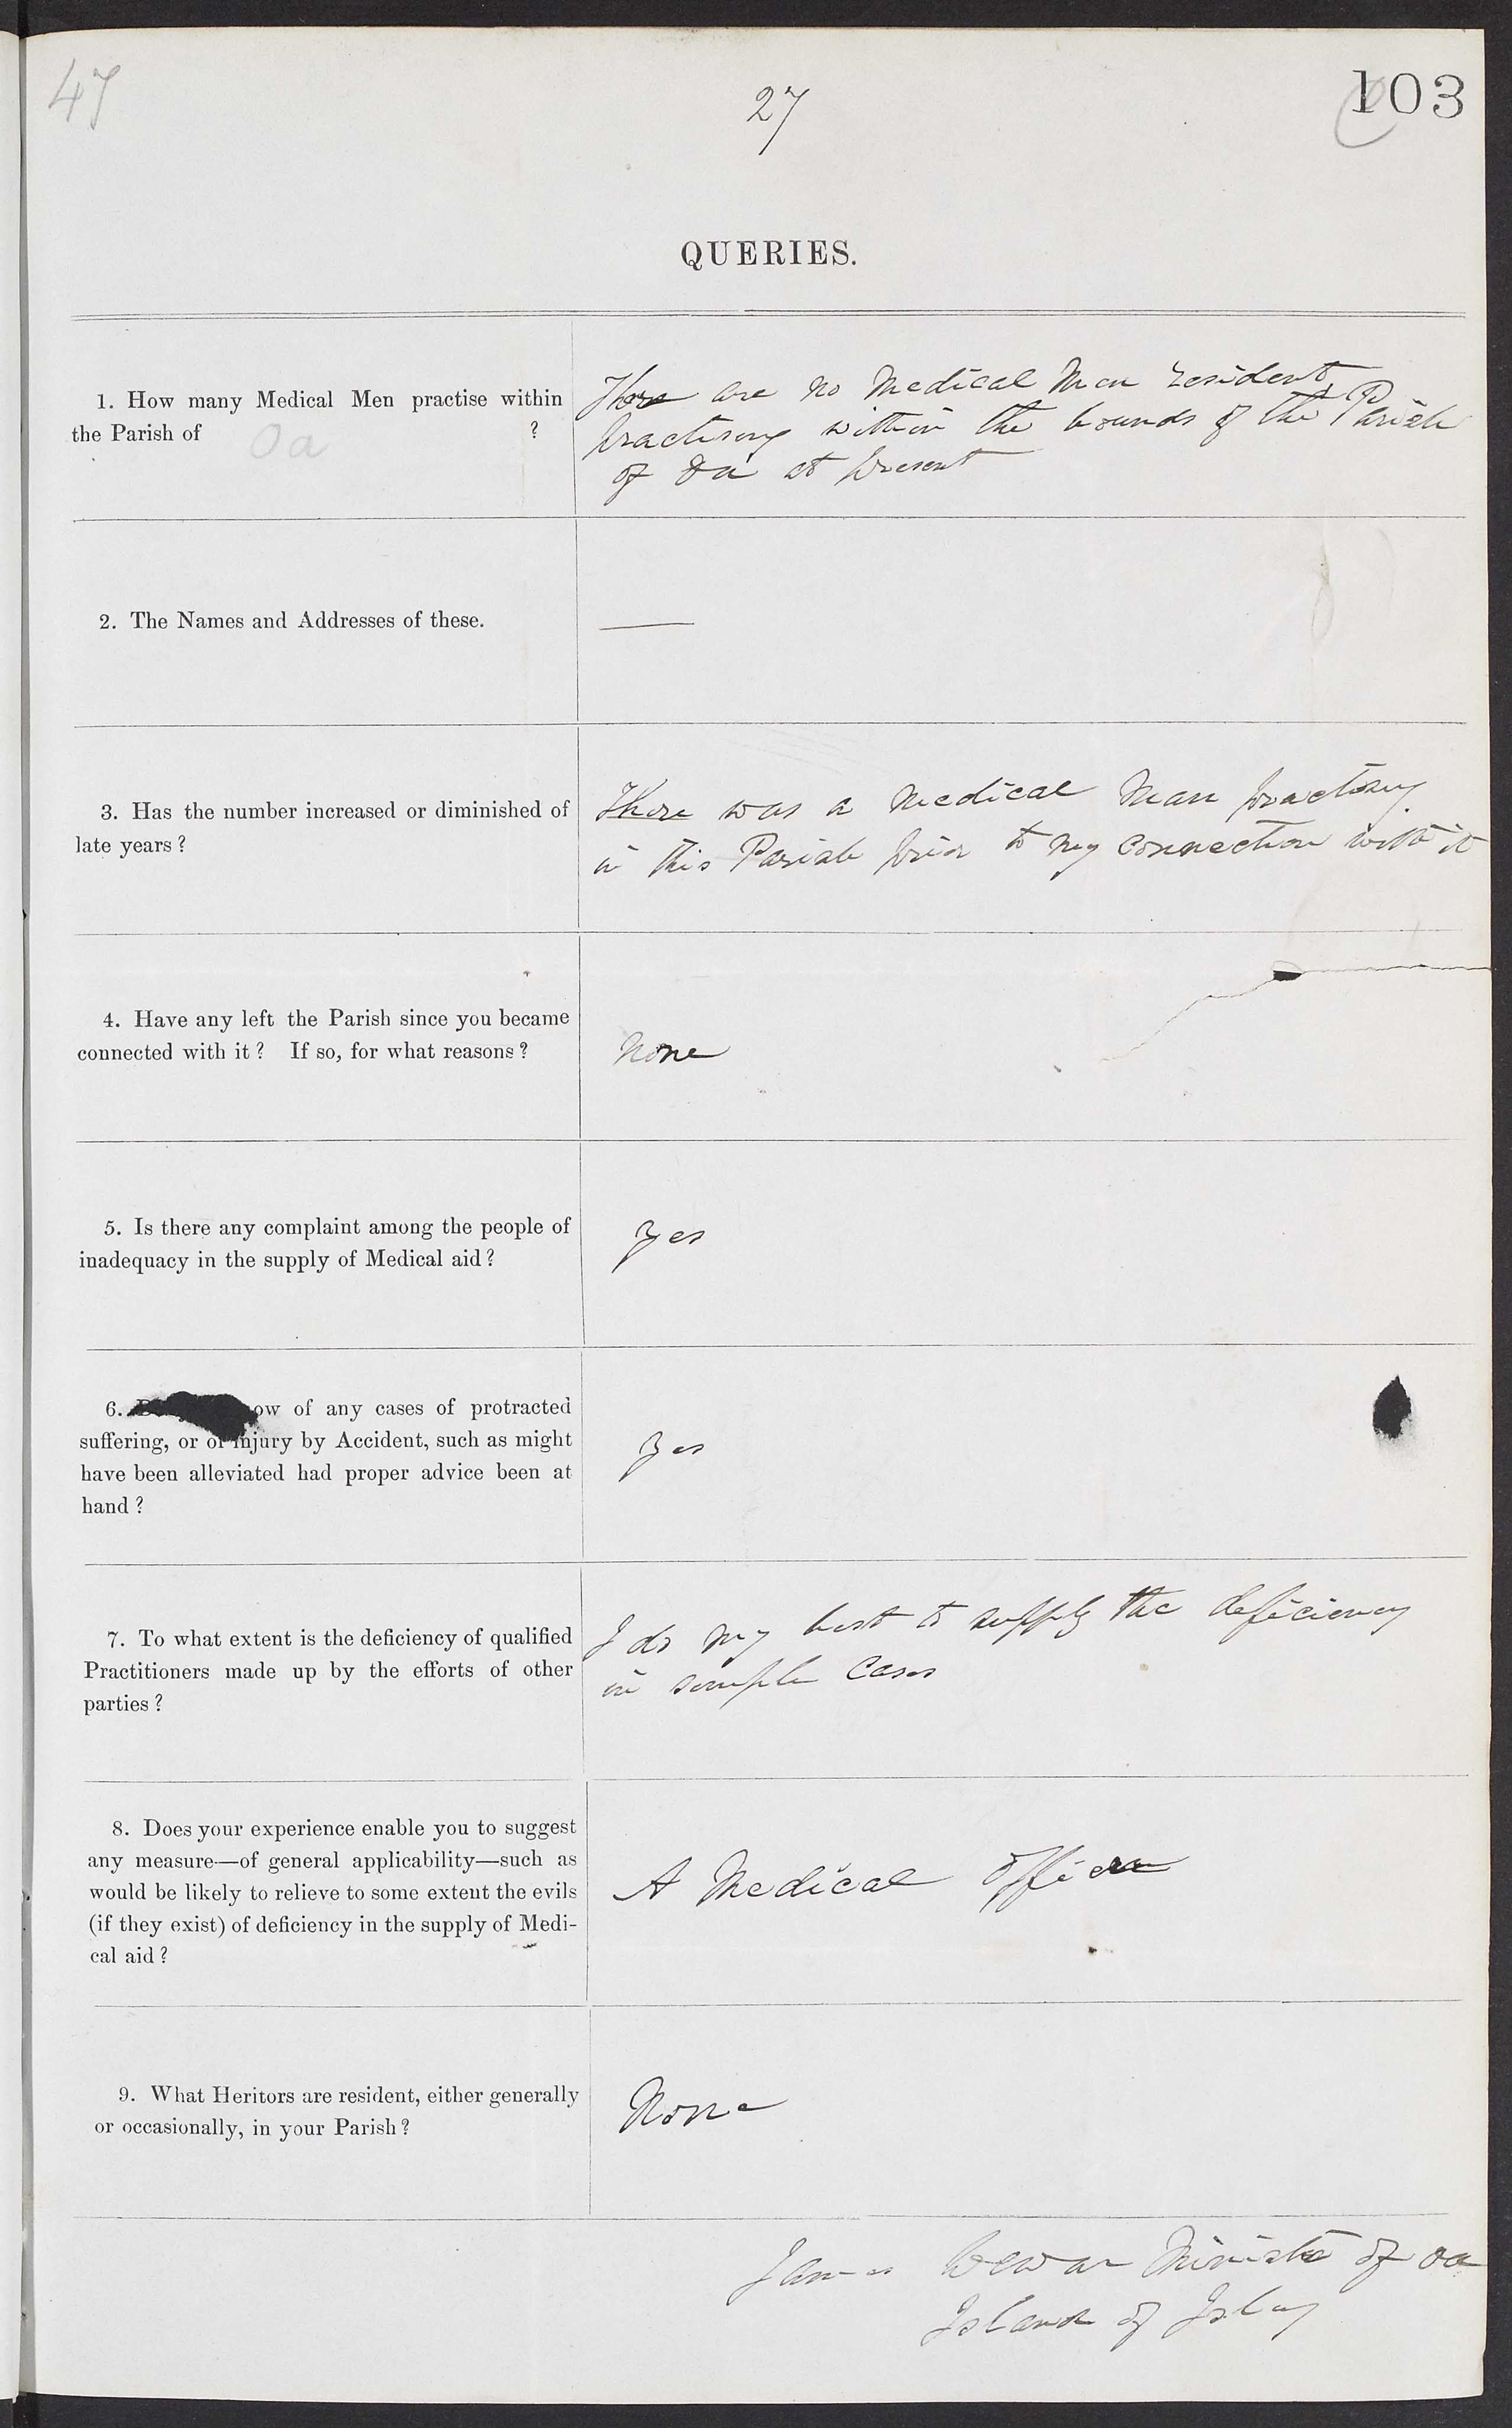 47
27
103
QUERIES.
1. How many Medical Men practise within
the Parish of Oa ?
There are no Medical Men resident,
practising within the bounds of the Parish
of Oa at present
2. The Names and Addresses of these.
—
3. Has the number increased or diminished of
late years?
There was a Medical Man practising
in this Parish prior to my connection with it
4. Have any left the Parish since you became
connected with it? If so, for what reasons?
None
5. Is there any complaint among the people of
inadequacy in the supply of Medical aid?
Yes
6. ow of any cases of protracted
suffering, or of injury by Accident, such as might
have been alleviated had proper advice been at
hand?
Yes
7. To what extent is the deficiency of qualified
Practitioners made up by the efforts of other
parties?
I do my best to supply the deficiency
in simple Cases
8. Does your experience enable you to suggest
any measure—of general applicability—such as
would be likely to relieve to some extent the evils
(if they exist) of deficiency in the supply of Medi-
cal aid?
A Medical Officer
9. What Heritors are resident, either generally
or occasionally, in your Parish?
None
James Dewar Minister of Oa
Island of Islay